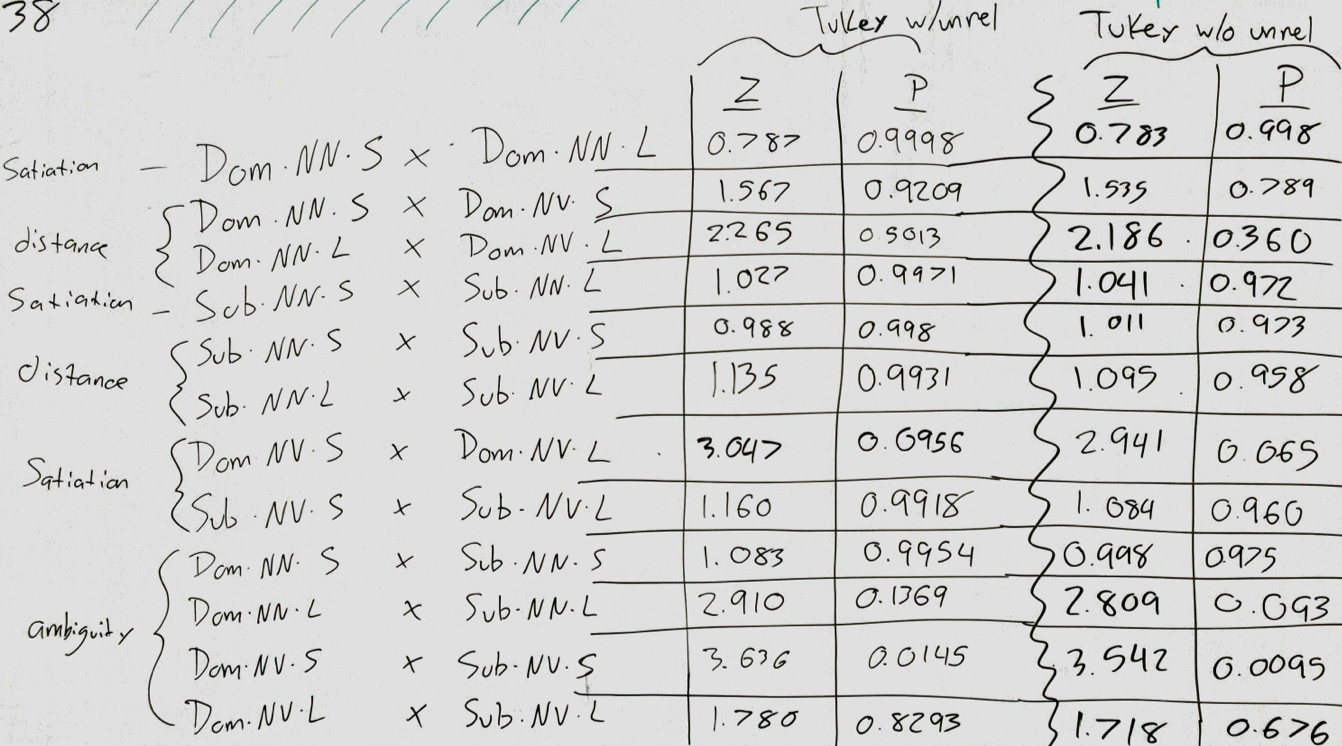 38
Tukey w/unrel Tukey w/o unrel
Z P Z P
Satiation - Dom·NN·S x Dom·NN·L 0.787 0.9998 0.783 0.998
distance { Dom·NN·S x Dom·NV·S 1.567 0.9209 1.535 0.789
Dom·NN·L x Dom·NV·L 2.265 0.5013 2.186 0.360
Satiation - Sub·NN·S x Sub·NN·L 1.027 0.9971 1.041 0.972
distance { Sub·NN·S x Sub·NV·S 0.988 0.998 1.011 0.973
Sub·NN·L x Sub·NV·L 1.135 0.9931 1.095 0.958
Satiation { Dom NV·S x Dom·NV·L 3.047 0.0956 2.941 0.065
Sub·NV·S x Sub-NV·L 1.160 0.9918 1.084 0.960
ambiguity { Dom·NN·S x Sub·NN·S 1.083 0.9954 0.998 0.975
Dom·NN·L x Sub·NN·L 2.910 0.1369 2.809 0.093
Dom·NV·S x Sub·NV·S 3.636 0.0145 3.542 0.0095
Dom·NV·L x Sub·NV·L 1.780 0.8293 1.718 0.676